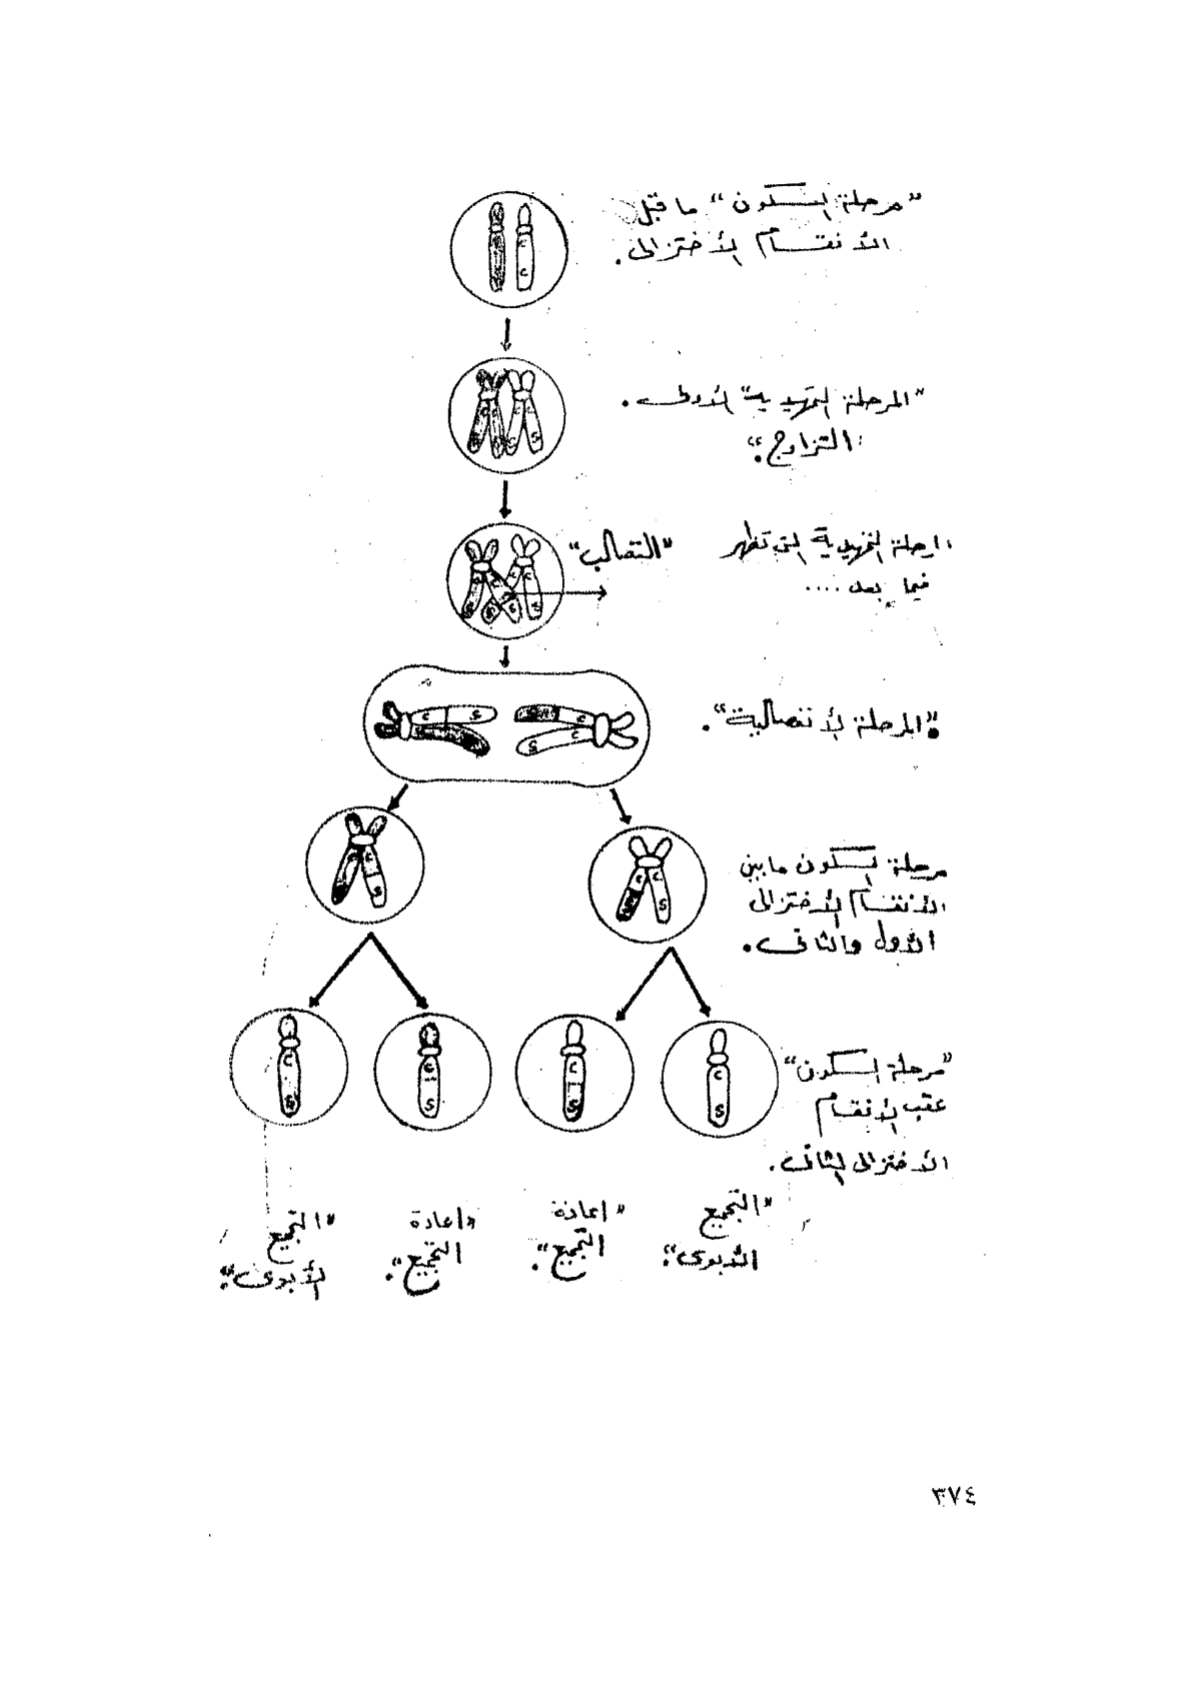 "مرحلة السكون" ما قبل
الأنقسام الأختزالى.
"المرحلة التمهيدية" الأولى.
"التزاوج".
"التصالب"
المرحلة التمهيدية التى تظهر
فيما بعد ....
"المرحلة الأنفصالية".
مرحلة السكون ما بين
الأنقسام الأختزالى
الأول والثانى.
"مرحلة السكون"
عقب الأنقسام
الأختزالى الثانى.
"التجميع
الأبوى".
"إعادة
التجميع".
"إعادة
التجميع".
"التجميع
الأبوى".
٣٧٤